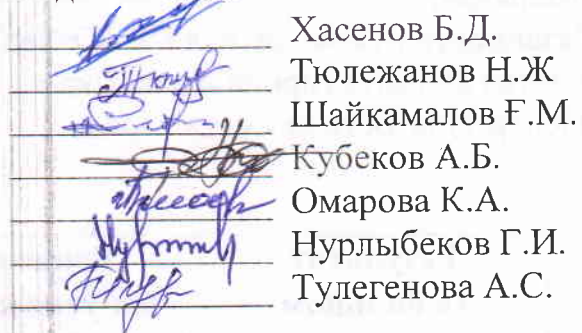 Хасенов Б.Д.
Тюлежанов Н.Ж
Шайкамалов Ғ.М.
Кубеков А.Б.
Омарова К.А.
Нурлыбеков Г.И.
Тулегенова А.С.